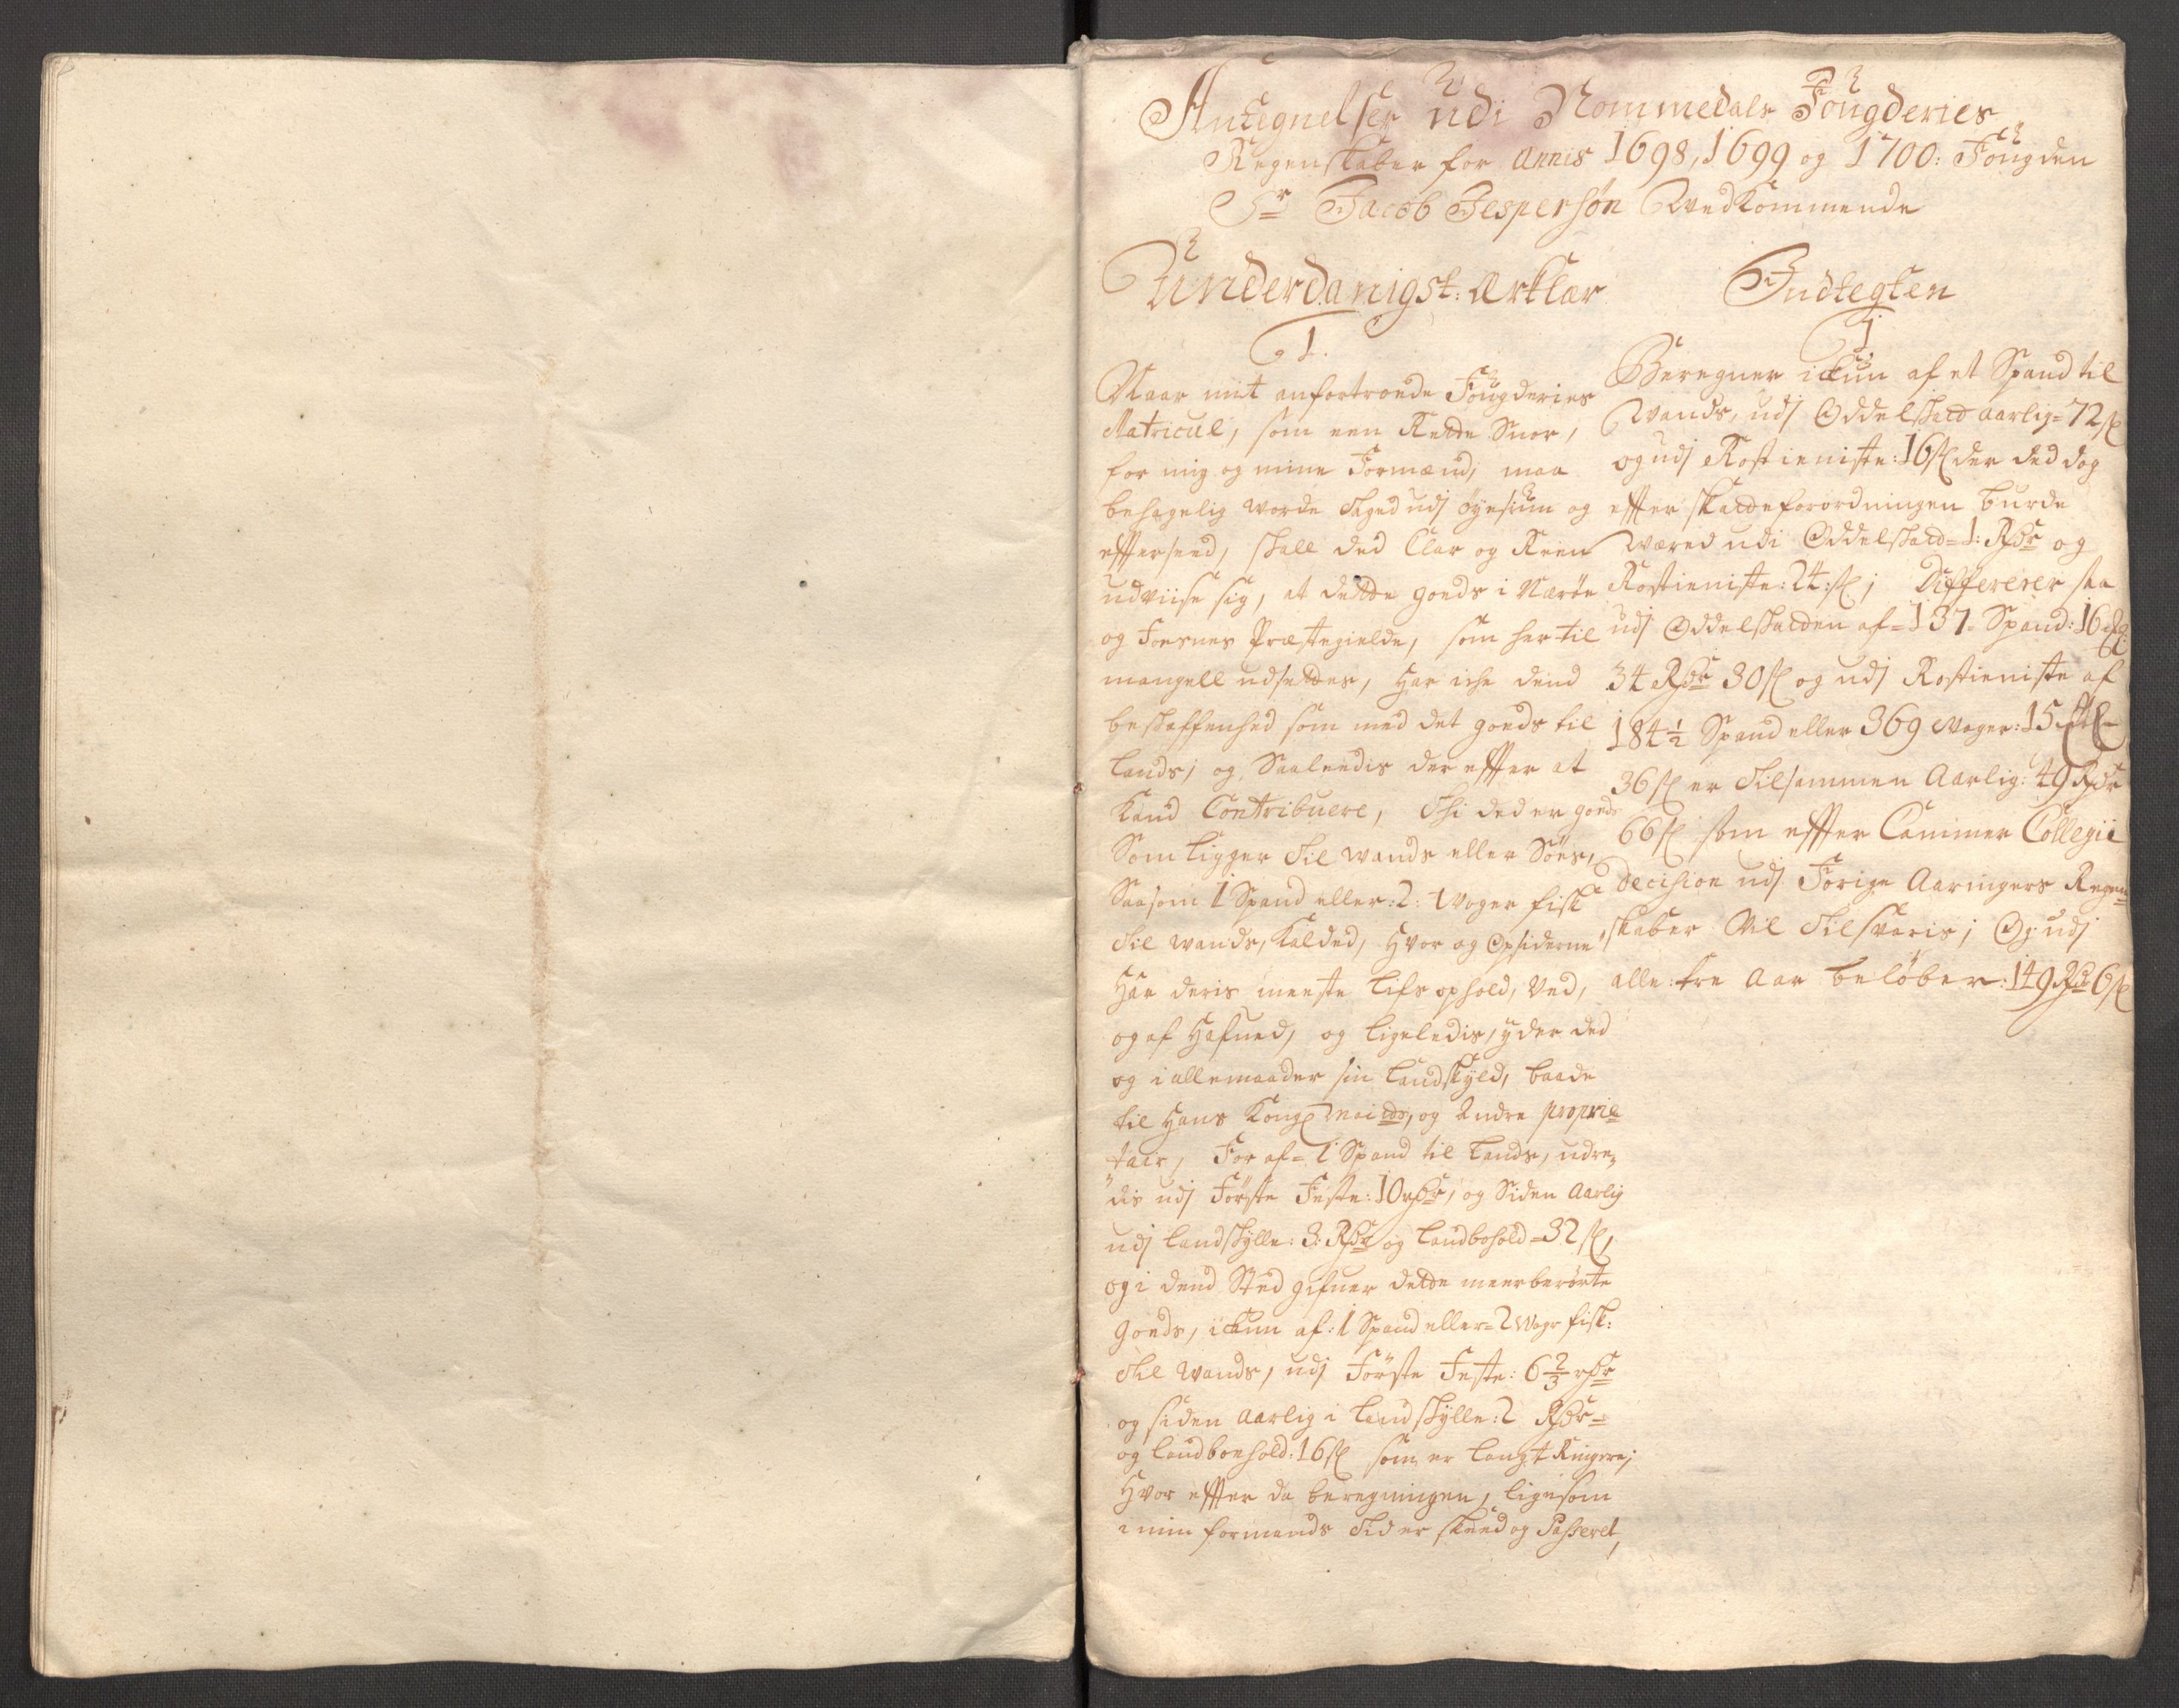 Antegnelser udi Nommedals Fougderies
Regenskaber for Annis 1698, 1699 og 1700: Fougden
Sr Jacob Jespersøn Wedkommende
Underdanigst: Ærklær
1.
Naar mit anfortroede Fougderies
Matricul, som een Rette Snor,
for mig og mine Formænd, maa
behagelig worde taged udj øyesiun og
efftersend, skall ded Clar og Reen
udviise sig, at dette goeds i Nærøe
og Foesnes Præstegielde, som her til
mangell udsettes, Har iche dend
beskaffenhed som med det goeds til
Lands; og Saaleedis der effter at
Kand Contribuere, Thi ded er goeds
Som ligger til wands eller Søes,
Saasom 1 Spand eller: 2: Woger fisk
til wands, Kalded, Hvor og Opsiderne
Har deris meeste Lifs ophold, Ved,
og af Hafued, og ligeledis, yder ded
og i allemaader sin Landskyld, baade
til Hans Kongl Maitts, og Andre proprie
tair, For af= 1 Spand til Lands, udre,
dis udj Förste Feste: 10 rdr, og Siden Aarlig
udj Landskylle: 3: Rdr og Landbohold= 32 s,
og i dend Sted gifuer dette meerberørte
Goeds, ickun af: 1 Spand eller= 2 Wogr fisk:
Til wands, udj Förste Feste: 6 2/3 rdr
og siden Aarlig i Landskylle: 2 Rdr=
og landboehold: 16 s som er langt Ringere;
Hvor effter da beregningen, ligesom
i min formands Tid er skeed og Passeret,
Indtegten
1
Beregner ickun af et Spand til
Wands, udj Oddelskatt aarlig= 72 s
og udj Rostieniste: 16 s der ded dog
effter skatteforordningen burde
Wæred udi Oddelskatt= 1: Rdr og
Rostieniste: 24: s; Differerer saa
udj Oddelskatten af= 137= Spand: 16
34 Rdr 30 s og udj Rostieniste af
184 1/2 Spand eller 369 Woger: 15
36 s er Tilsammen Aarlig: 49 Rdr
66 s som effter Cammer Collegii
Decision udj Forige Aaringers Regen
skaber Vil Tilsvaris; Og udj
alle: tre Aar beløber: 149 Rdr 6 s